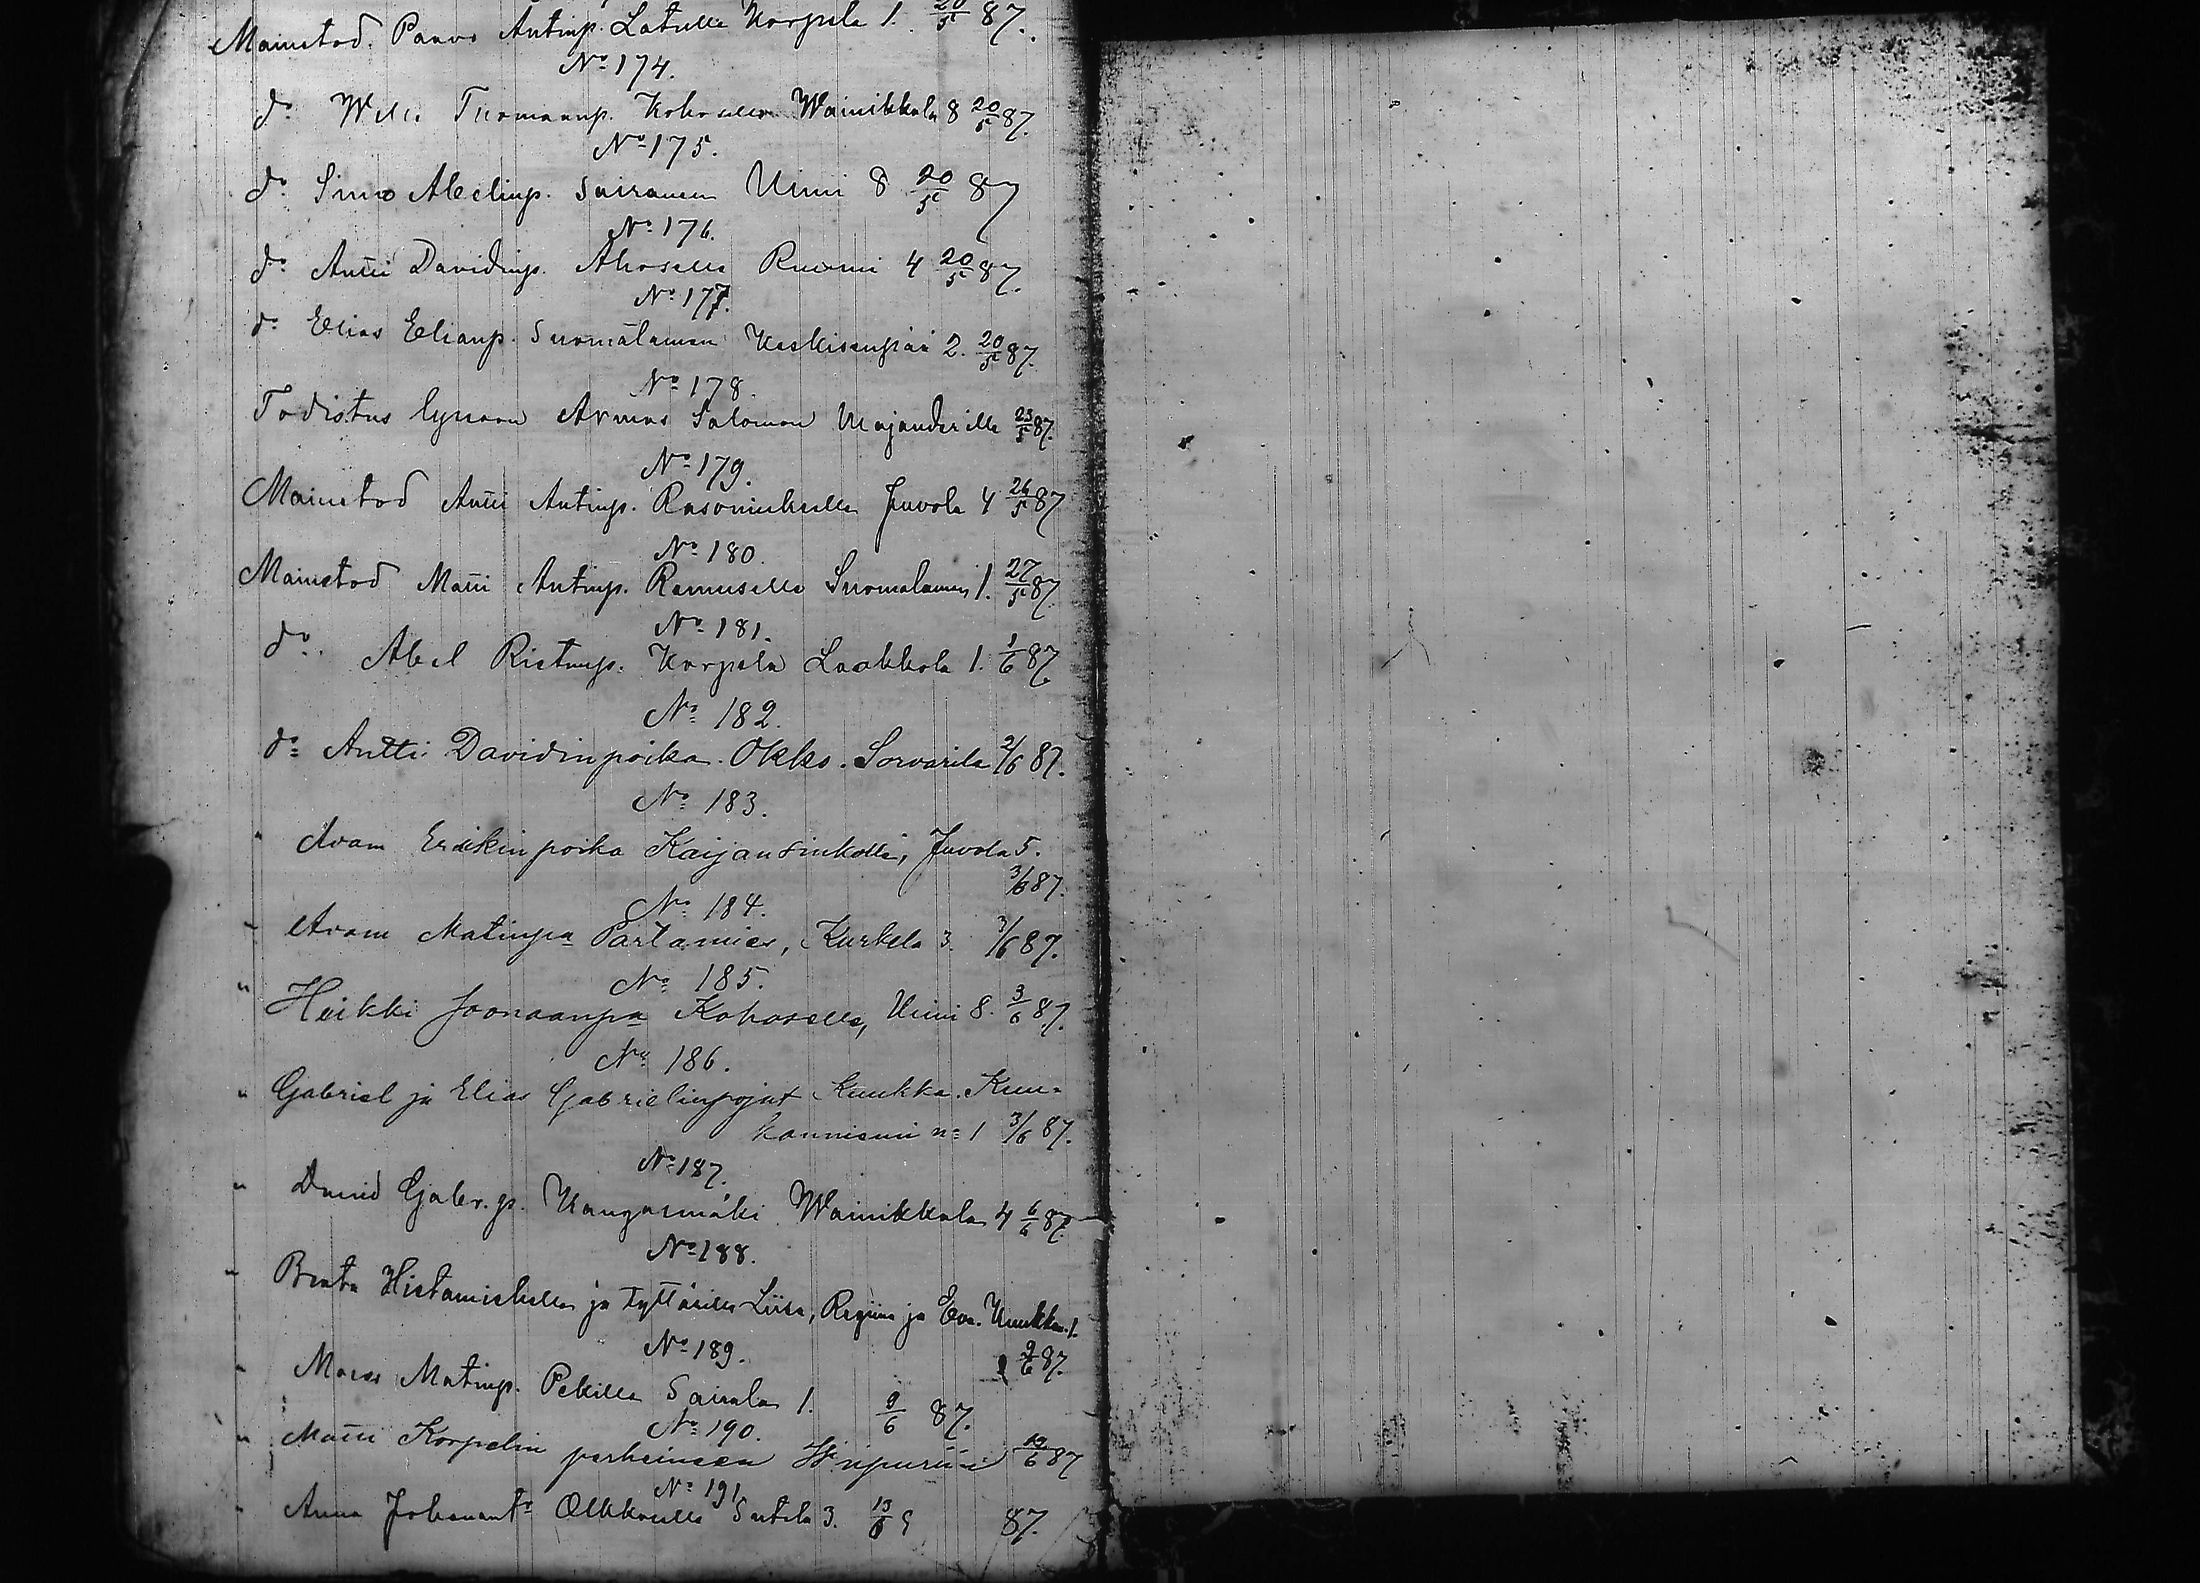 Mainetod. Paavo Antinp. Latulle Korpela 1. 20/5 87.
No 174.
do Tuomaanp. Kohoselle Wainikkala 8 20/5 87.
No 175.
do Simo Abelinp. Sairanen Uimi 8 20/5 87
No 176.
do Antti Davidinp. Ahoselle Ruomi 4 20/5 87.
No 177.
do Elias Elianp. Suomalainen Keskisenpää 2. 20/5 87.
No 178.
Todistus Armas Salomon Majanderille 23/5 87.
No 179.
Mainetod Antti Antinp. Juvola 4 26/5 87
No 180.
Mainetod Matti Antinp. Suomalainen 1. 27/5 87.
No 181.
do. Abel Ristonp. Korpela Laakkola 1. 1/6 87.
No 182.
do Antti Davidinpoika Okko. Sorvarila 2/6 87.
No 183.
" Aram Erikinpoika Kaijansinkolle, Juvola 5.
3/6 87.
No 184.
" Aram Matinpa Partamies, Kurkela 3. 3/6 87.
No 185.
" Heikki Joonaanpa Kohoselle, Uimi 8. 3/6 87.
No 186.
" Gabriel ja Elias Gabrielinpojat Kuukka. Kun=
kanniemi no 1 3/6 87.
No 187.
" David Gabr.p. Kangasmäki Wainikkala 4 6/6 87.
No 188.
" Beata ja tyttärille Liisa, Regiina ja Eva. Kuukka 1.
No 189. 9/6 87.
" Moses Matinp. Pekille Sairala 1. 9/6 87.
No 190.
" Matti Korpelin perheineen Wiipuriin 10/6 87
No 191
" Anna Johanant. Olkkoselle Sutela 3. 13/6 87.